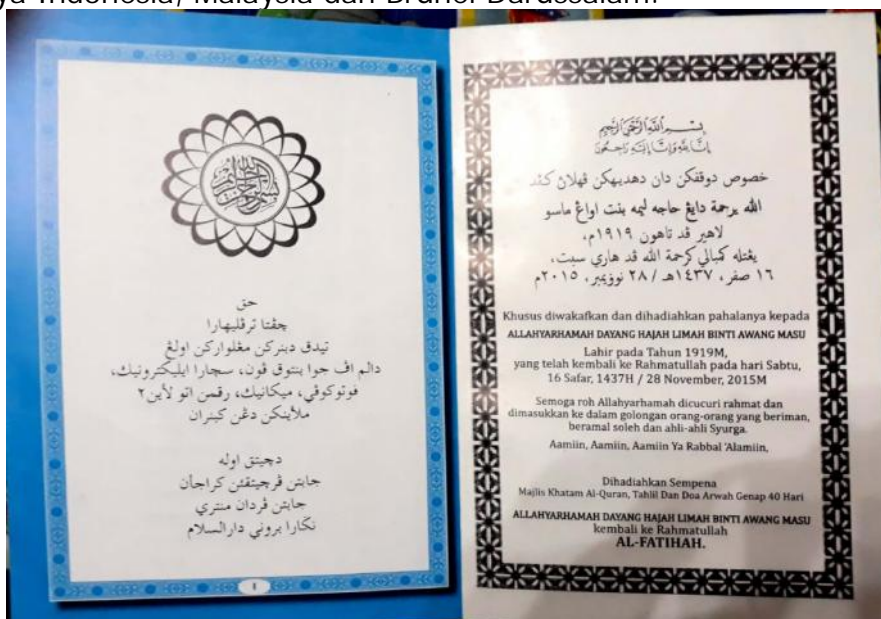 ya Indonesia, Malaysia dan Brunei Darussalam.
حق
چڤتا ترڤليهارا
تيدق دبنركن مڠلواركن اولڠ
دالم اڤ جوا بنتوق ڤون، سچارا ايليكترونيك،
فوتوكوڤي، ميكانيك، رقمن اتو لأين٢
ملاٴينكن دڠن كبنران
دچيتق اوله
جابتن ڤرچيتقن كراجأن
جابتن ڤردان منتري
نڬارا بروني دارالسلام
٤
بسم الله الرحمن الرحيم
إنا لله وإنا إليه راجعون
خصوص دوقفكن دان دهديهكن ڤهلاڽ كڤد
الله يرحمة دايڠ حاجه ليمه بنت اواڠ ماسو
لاهير ڤد تاهون ١٩١٩م،
يڠتله كمبالي كرحمة الله ڤد هاري سبت،
١٦ صفر، ١٤٣٧هـ / ٢٨ نوۏيمبر، ٢٠١٥م
Khusus diwakafkan dan dihadiahkan pahalanya kepada
ALLAHYARHAMAH DAYANG HAJAH LIMAH BINTI AWANG MASU
Lahir pada Tahun 1919M,
yang telah kembali ke Rahmatullah pada hari Sabtu,
16 Safar, 1437H / 28 November, 2015M
Semoga roh Allahyarhamah dicucuri rahmat dan
dimasukkan ke dalam golongan orang-orang yang beriman,
beramal soleh dan ahli-ahli Syurga.
Aamiin, Aamiin, Aamiin Ya Rabbal ‘Alamiin,
Dihadiahkan Sempena
Majlis Khatam Al-Quran, Tahlil Dan Doa Arwah Genap 40 Hari
ALLAHYARHAMAH DAYANG HAJAH LIMAH BINTI AWANG MASU
kembali ke Rahmatullah
AL-FATIHAH.